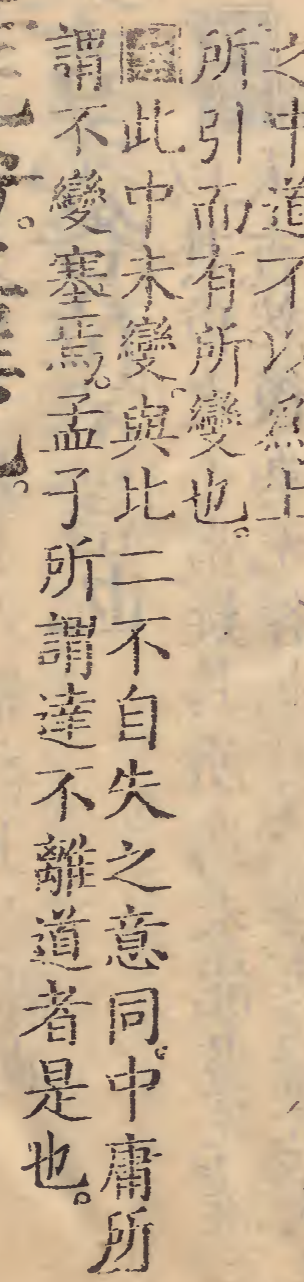 之中道不以為上
所引而有所變也。
圖此中未變。與比二不自失之意同。中庸所
謂不變塞焉。孟子所謂達不離道者是也。